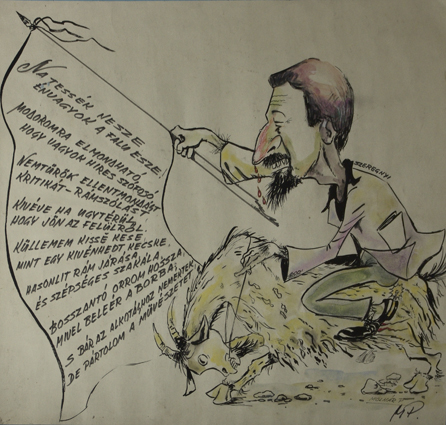 NATESSÉK NESZE
ÉNVAGYOK A FALU ESZE!
MODOROMRA ELMONDHATÓ,
HOGY VAGYOK HIRES SZÓFOSÓ
NEMTŰRÖK ELLENTMONDÁST
KRITIKÁT-RÁMSZÓLÁST
KIVÉVE HA ÚGYTÉRÜL,
HOGY JÖN AZ FELÜLRŐL.
KÜLLEMEM KISSÉ KESE
MINT EGY KIVÉNHEDT KECSKE,
HASONLIT RÁM JÁRÁSA,
ÉS SZÉPSÉGES SZAKÁLA.
BOSSZANTÓ ORROM HOSSZA,
MIVEL BELEÉR A BORBA,
S BÁR AZ ALKOTÁSHOZ NEMÉRTEK,
DE PÁRTOLOM A MŰVÉSZETEK
SZEREGNYI
M.P.